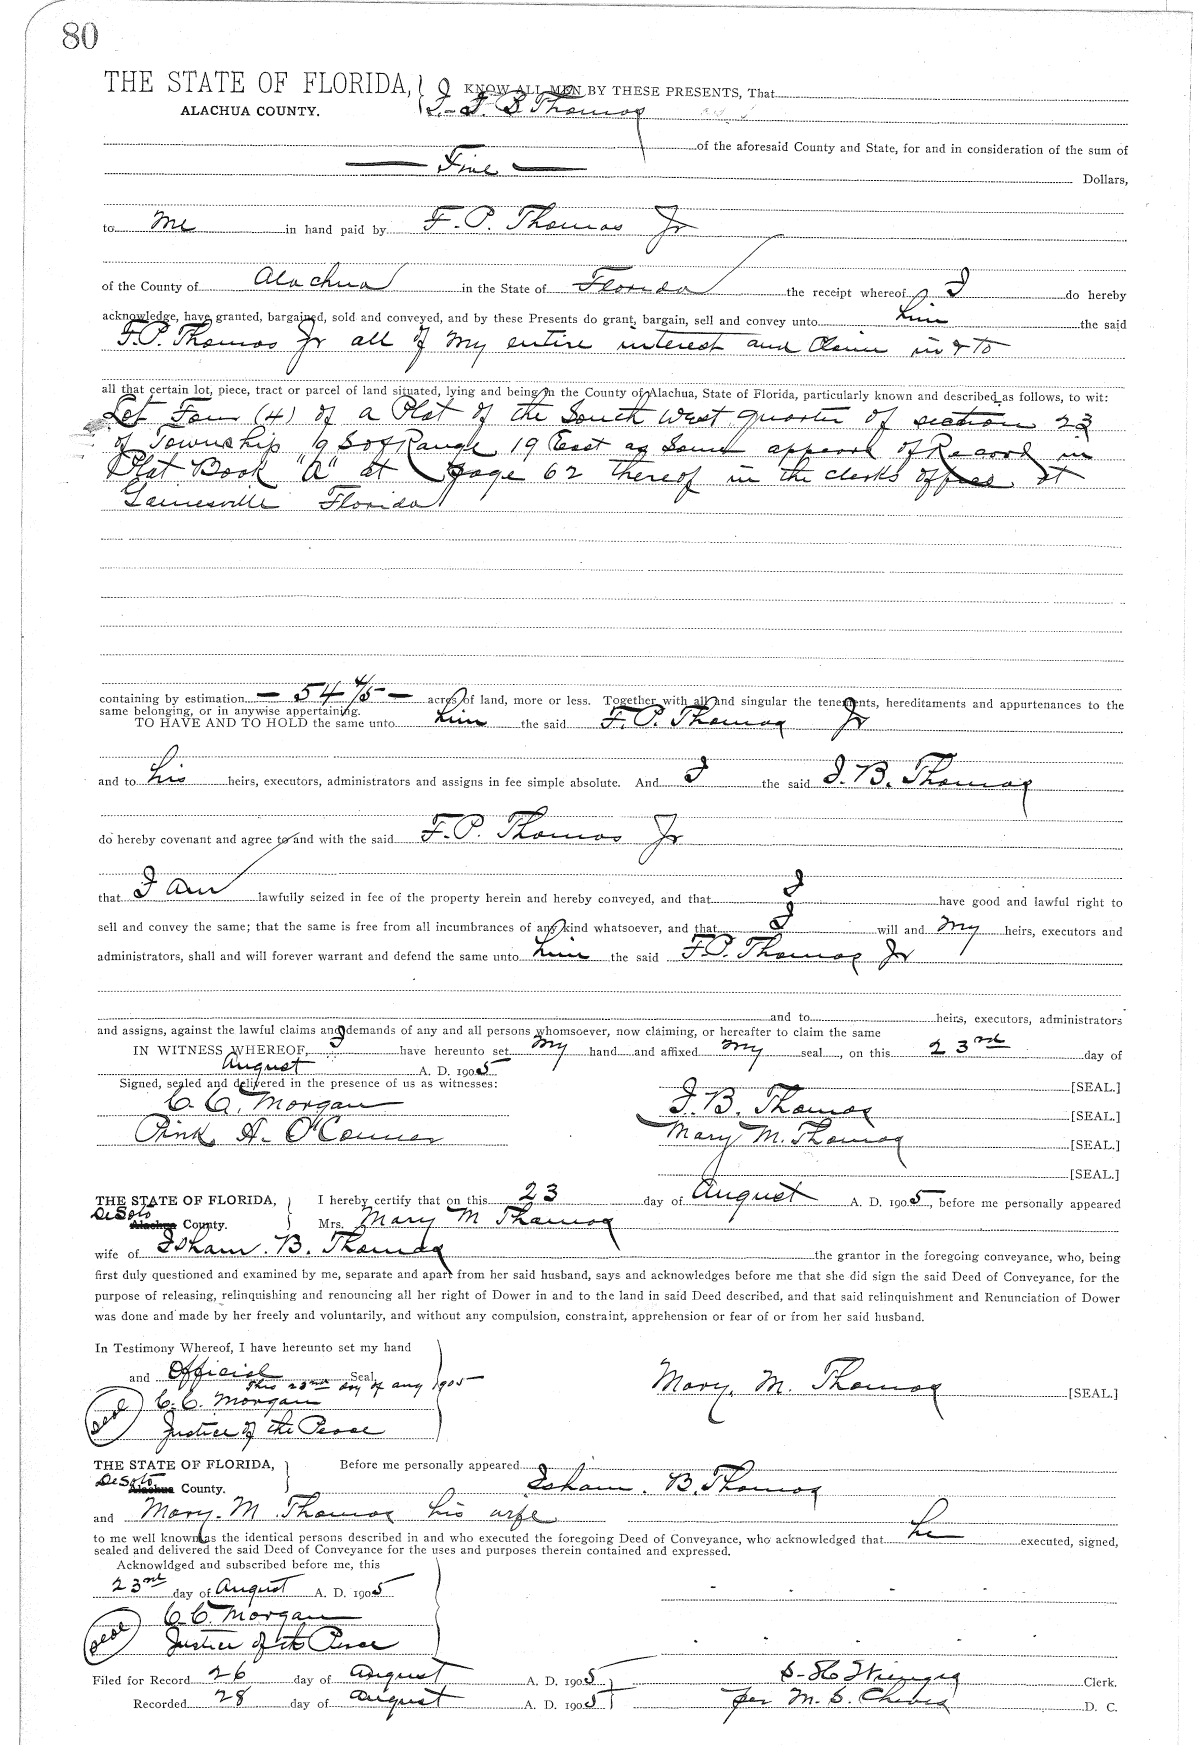 80
THE STATE OF FLORIDA, } KNOW ALL MEN BY THESE PRESENTS, That
ALACHUA COUNTY. I B Thomas
of the aforesaid County and State, for and in consideration of the sum of
— Five — Dollars,
to me in hand paid by F. P. Thomas Jr
of the County of Alachua in the State of Florida the receipt whereof I do hereby
acknowledge, have granted, bargained, sold and conveyed, and by these Presents do grant, bargain, sell and convey unto him the said
F. P. Thomas Jr all of my entire interest and Claim in & to
all that certain lot, piece, tract or parcel of land situated, lying and being in the County of Alachua, State of Florida, particularly known and described as follows, to wit:
Lot Four (4) of a Plat of the South West quarter of section 23
of Township 9 S of Range 19 East as Same appears of Record in
Plat Book "A" at page 62 thereof in the clerks office at
Gainesville Florida
containing by estimation — 54 4/5 — acres of land, more or less. Together with all and singular the tenements, hereditaments and appurtenances to the
same belonging, or in anywise appertaining.
TO HAVE AND TO HOLD the same unto him the said F. P. Thomas Jr
and to his heirs, executors, administrators and assigns in fee simple absolute. And I the said I. B. Thomas
do hereby covenant and agree to and with the said F. P. Thomas Jr
that I am lawfully seized in fee of the property herein and hereby conveyed, and that I have good and lawful right to
sell and convey the same; that the same is free from all incumbrances of any kind whatsoever, and that I will and my heirs, executors and
administrators, shall and will forever warrant and defend the same unto him the said F. P. Thomas Jr
and to heirs, executors, administrators
and assigns, against the lawful claims and demands of any and all persons whomsoever, now claiming, or hereafter to claim the same
IN WITNESS WHEREOF, I have hereunto set my hand and affixed my seal, on this 23rd day of
August A. D. 1905
Signed, sealed and delivered in the presence of us as witnesses: [SEAL.]
C. C. Morgan I. B. Thomas [SEAL.]
Pink A. O'Conner Mary M. Thomas [SEAL.]
[SEAL.]
THE STATE OF FLORIDA, } I hereby certify that on this 23 day of August A. D. 1905, before me personally appeared
DeSoto Alachua County. Mrs. Mary M Thomas
wife of Isham. B. Thomas the grantor in the foregoing conveyance, who, being
first duly questioned and examined by me, separate and apart from her said husband, says and acknowledges before me that she did sign the said Deed of Conveyance, for the
purpose of releasing, relinquishing and renouncing all her right of Dower in and to the land in said Deed described, and that said relinquishment and Renunciation of Dower
was done and made by her freely and voluntarily, and without any compulsion, constraint, apprehension or fear of or from her said husband.
In Testimony Whereof, I have hereunto set my hand
and Official Seal,
this 23rd day of Aug 1905
Mary. M. Thomas [SEAL.]
Seal C. C. Morgan
Justice of the Peace
THE STATE OF FLORIDA, } Before me personally appeared
DeSoto Alachua County. Isham. B. Thomas
and Mary. M Thomas his wife
to me well known as the identical persons described in and who executed the foregoing Deed of Conveyance, who acknowledged that he executed, signed,
sealed and delivered the said Deed of Conveyance for the uses and purposes therein contained and expressed.
Acknowldged and subscribed before me, this
23rd day of August A. D. 1905
C. C. Morgan
Seal Justice of the Peace
Filed for Record 26 day of August A. D. 1905 Clerk.
Recorded 28 day of August A. D. 1905 per M. S. Cheves D. C.